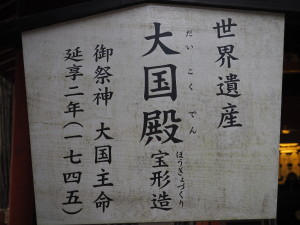 世界遺産
だいこくでん
大国殿
ほうぎょづくり
宝形造
御祭神 大国主命
延享二年(一七四五)